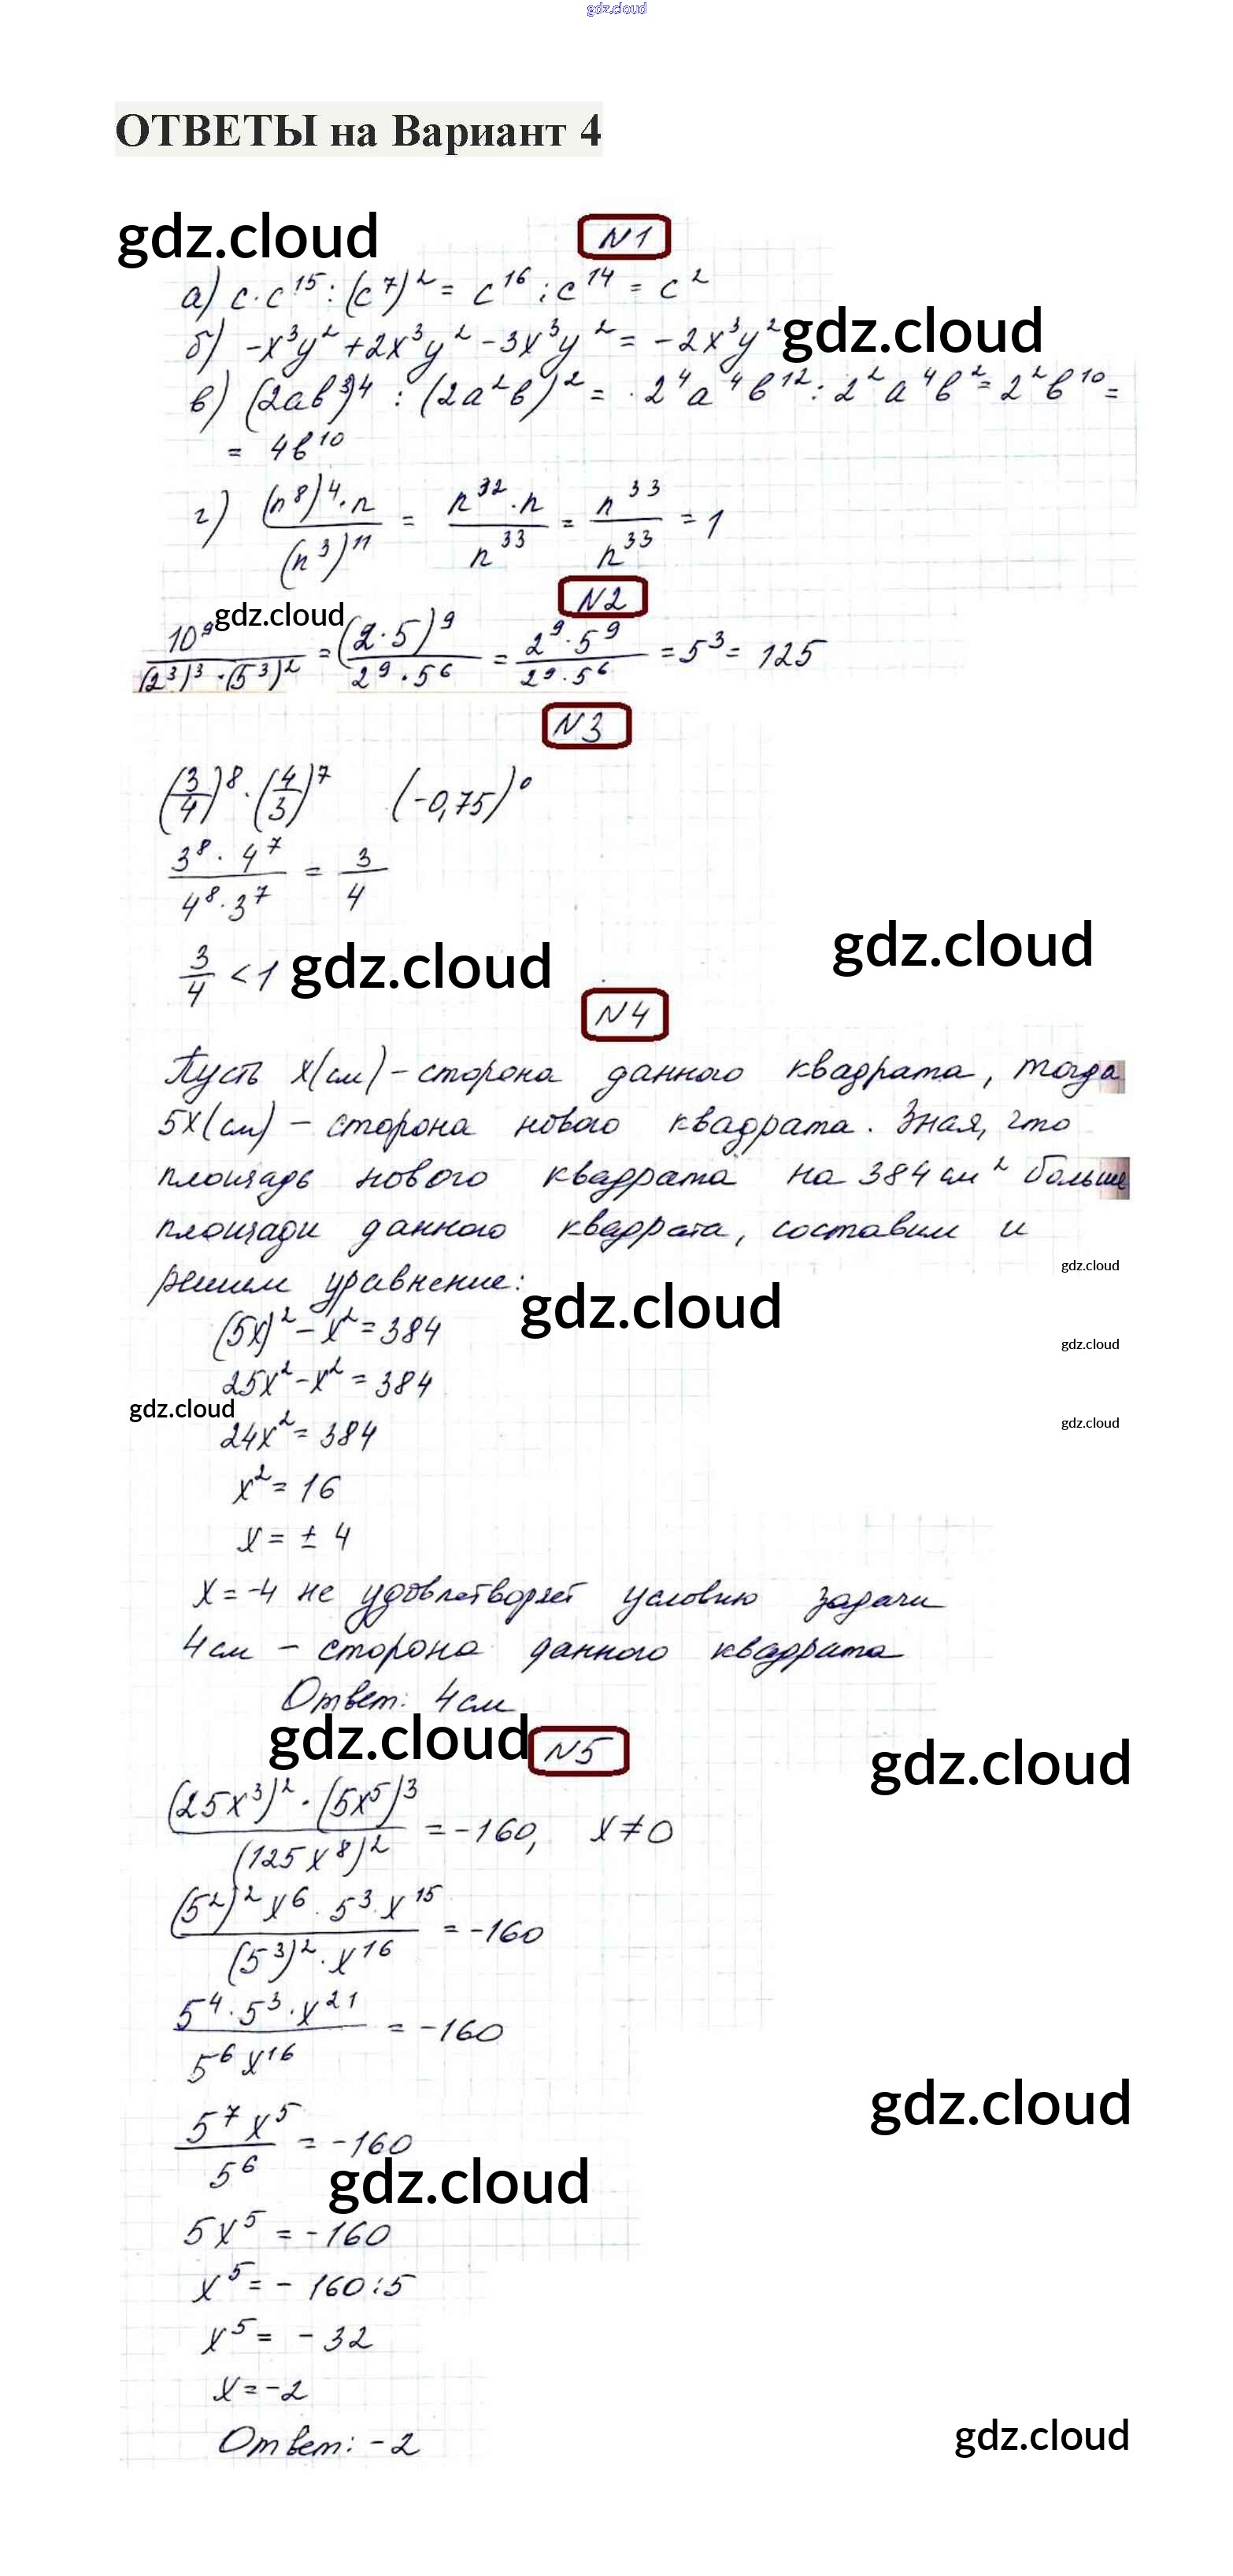 gdz.cloud
ОТВЕТЫ на Вариант 4
gdz.cloud
N1
а) c·c¹⁵:(c⁷)² = c¹⁶:c¹⁴ = c²
б) -x³y²+2x³y²-3x³y² = -2x³y²
gdz.cloud
в) (2ab³)⁴ : (2a²b)² = 2⁴a⁴b¹²:2²a⁴b² = 2²b¹⁰ =
= 4b¹⁰
г) (n⁸)⁴·n / (n³)¹¹ = n³²·n / n³³ = n³³ / n³³ = 1
N2
gdz.cloud
10⁹ / (2³)³·(5³)² = (2·5)⁹ / 2⁹·5⁶ = 2⁹·5⁹ / 2⁹·5⁶ = 5³ = 125
N3
(3/4)⁸·(4/3)⁷ (-0,75)⁰
3⁸·4⁷ / 4⁸·3⁷ = 3/4
gdz.cloud
3/4 < 1
gdz.cloud
N4
Пусть x(см) - сторона данного квадрата, тогда
5x(см) - сторона нового квадрата. Зная, что
площадь нового квадрата на 384 см² больше
площади данного квадрата, составим и
gdz.cloud
решим уравнение:
gdz.cloud
(5x)² - x² = 384
gdz.cloud
25x² - x² = 384
gdz.cloud
gdz.cloud
24x² = 384
x² = 16
x = ± 4
x = -4 не удовлетворяет условию задачи
4 см - сторона данного квадрата
Ответ: 4 см
gdz.cloud
N5
gdz.cloud
(25x³)²·(5x⁵)³ / (125x⁸)² = -160, x ≠ 0
(5²)²x⁶·5³·x¹⁵ / (5³)²·x¹⁶ = -160
5⁴·5³·x²¹ / 5⁶x¹⁶ = -160
gdz.cloud
5⁷x⁵ / 5⁶ = -160
gdz.cloud
5x⁵ = -160
x⁵ = - 160:5
x⁵ = - 32
x = -2
Ответ: -2
gdz.cloud